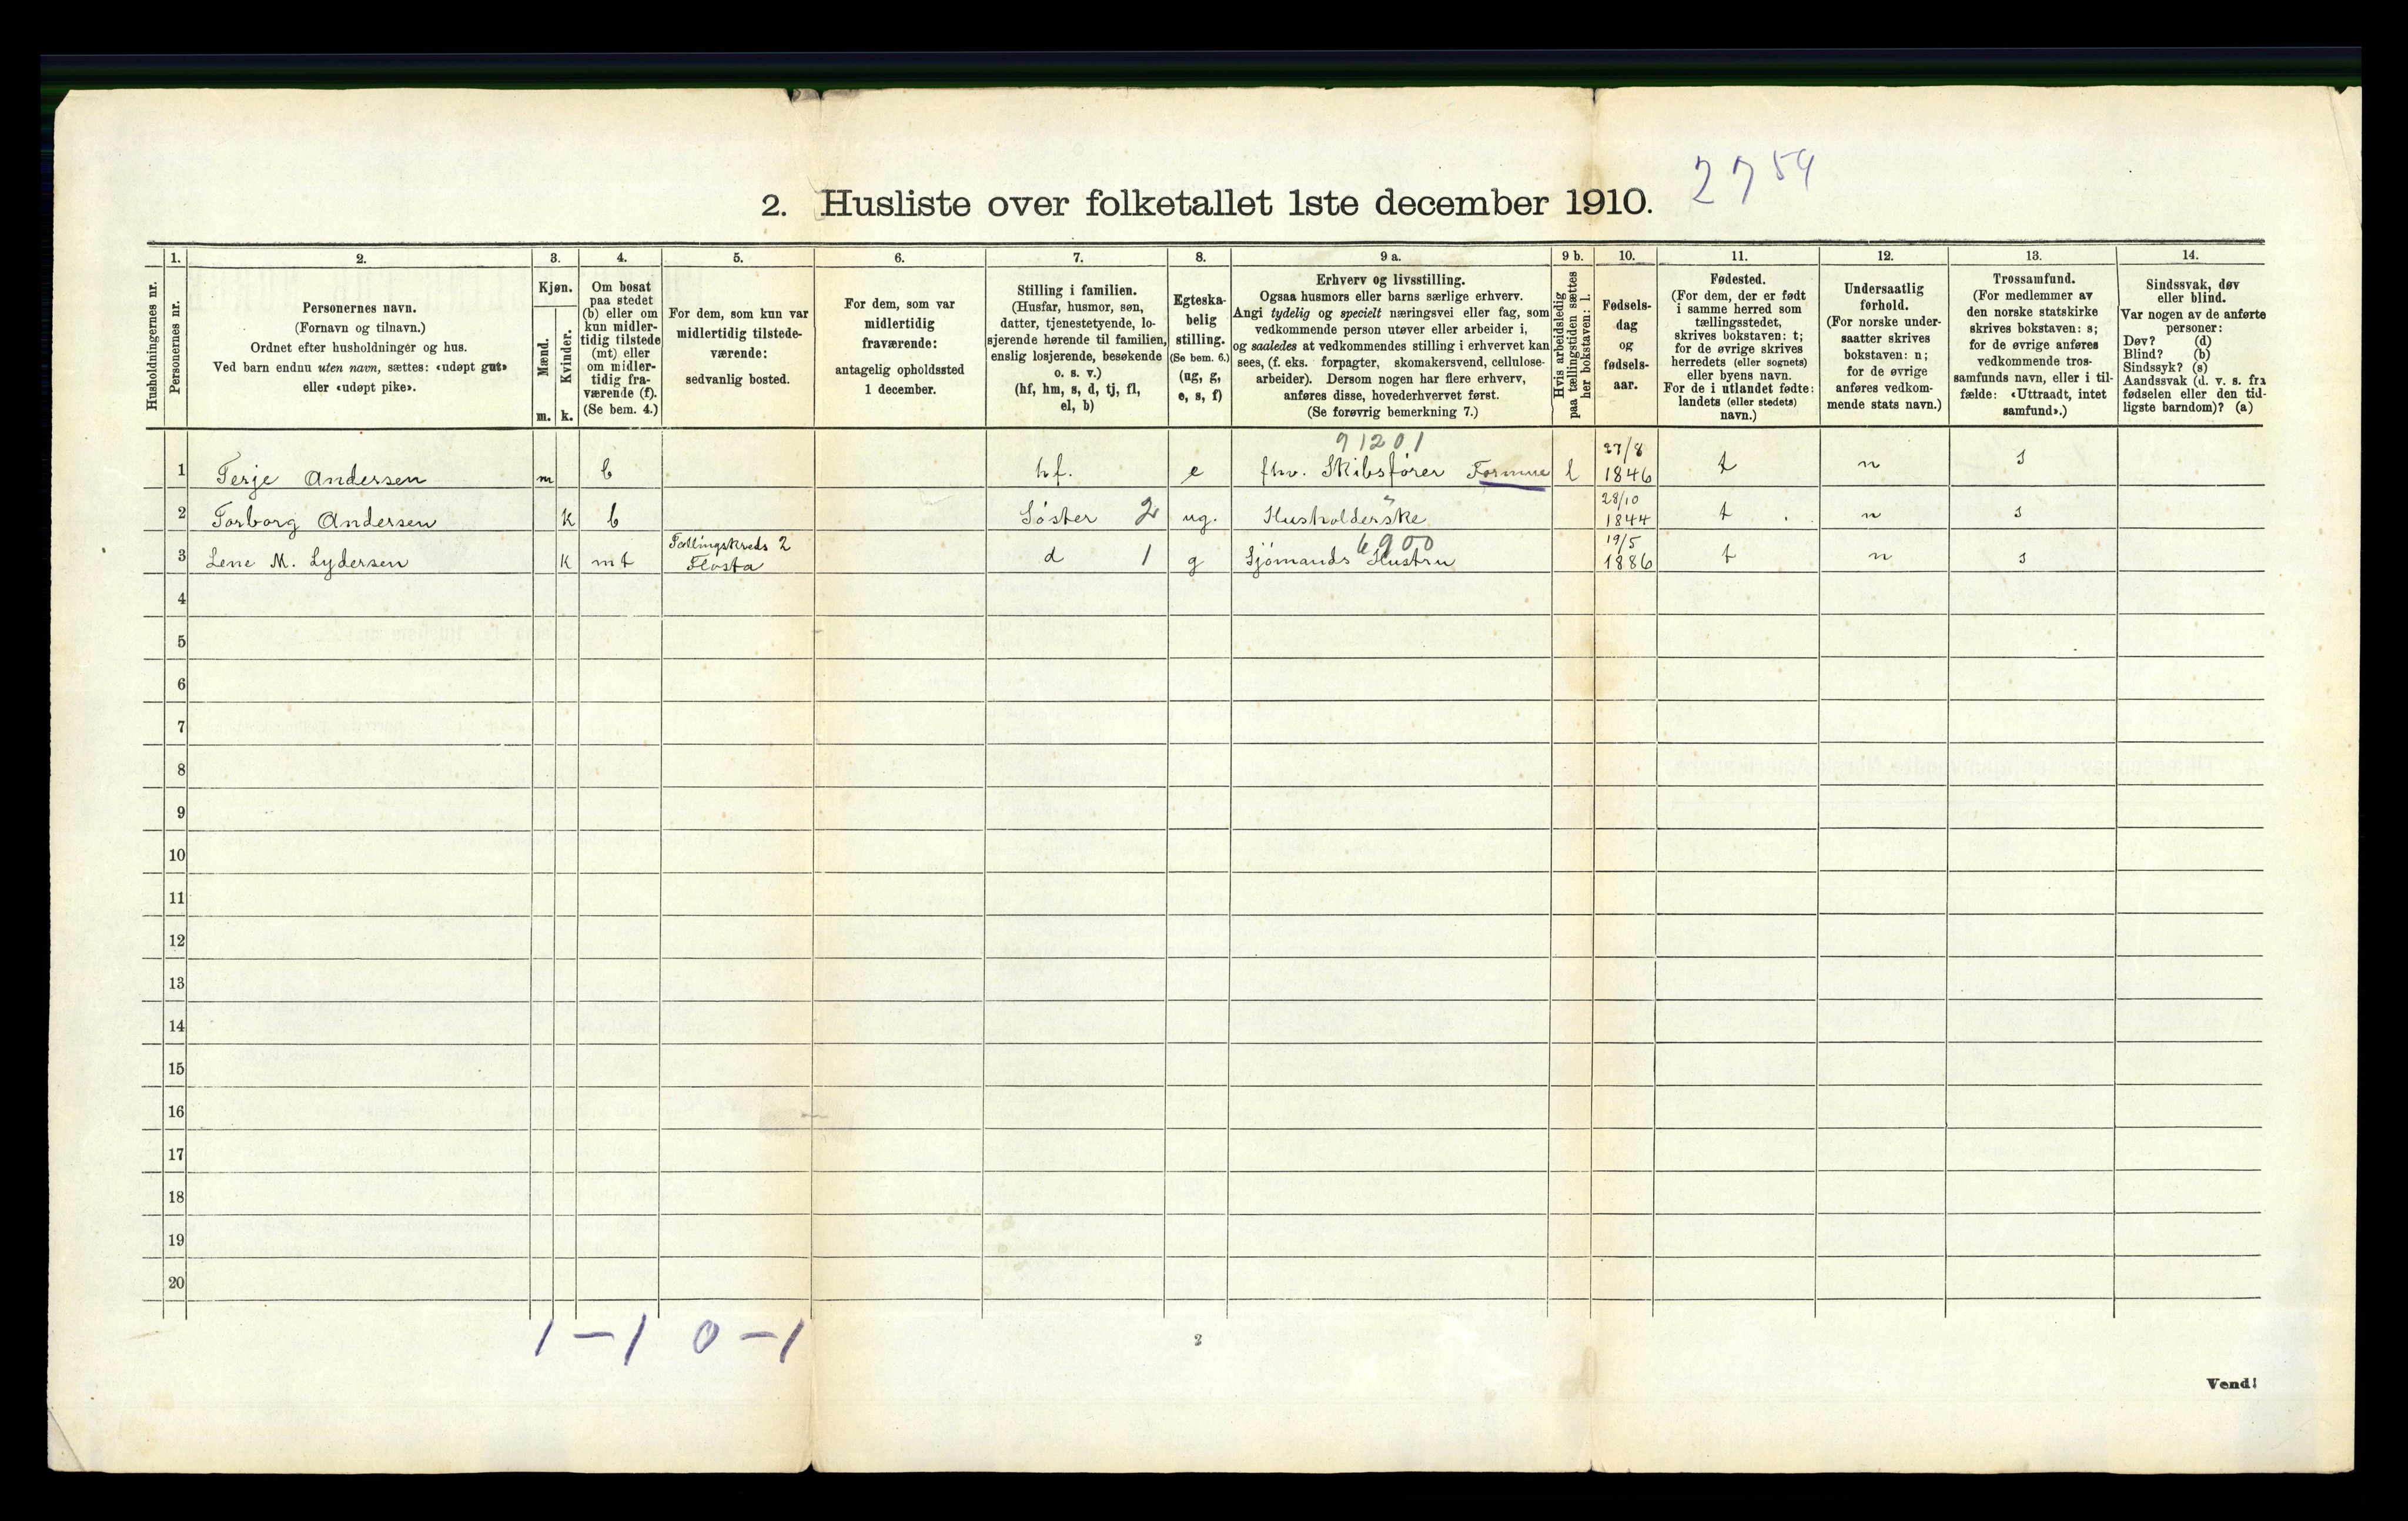 2754
2. Husliste over folketallet 1ste december 1910.
Husholdningernes nr.
1.
Personernes nr.
2.
Personernes navn.
(Fornavn og tilnavn.)
Ordnet efter husholdninger og hus.
Ved barn endnu uten navn, sættes: «udøpt gut»
eller «udøpt pike».
3.
Kjøn.
Mænd.
m.
Kvinder.
k.
4.
Om bosat
paa stedet
(b) eller om
kun midler-
tidig tilstede
(mt) eller
om midler-
tidig fra-
værende (f).
(Se bem. 4.)
5.
For dem, som kun var
midlertidig tilstede-
værende:
sedvanlig bosted.
6.
For dem, som var
midlertidig
fraværende:
antagelig opholdssted
1 december.
7.
Stilling i familien.
(Husfar, husmor, søn,
datter, tjenestetyende, lo-
sjerende hørende til familien,
enslig losjerende, besøkende
o. s. v.)
(hf, hm, s, d, tj, fl,
el, b)
8.
Egteska-
belig
stilling.
(Se bem. 6.)
(ug, g,
e, s, f)
9 a.
Erhverv og livsstilling.
Ogsaa husmors eller barns særlige erhverv.
Angi tydelig og specielt næringsvei eller fag, som
vedkommende person utøver eller arbeider i,
og saaledes at vedkommendes stilling i erhvervet kan
sees, (f. eks. forpagter, skomakersvend, cellulose-
arbeider). Dersom nogen har flere erhverv,
anføres disse, hovederhvervet først.
(Se forøvrig bemerkning 7.)
9 b.
Hvis arbeidsledig
paa tællingstiden sættes
her bokstaven: l.
10.
Fødsels-
dag
og
fødsels-
aar.
11.
Fødested.
(For dem, der er født
i samme herred som
tællingsstedet,
skrives bokstaven: t;
for de øvrige skrives
herredets (eller sognets)
eller byens navn.
For de i utlandet fødte:
landets (eller stedets)
navn.)
12.
Undersaatlig
forhold.
(For norske under-
saatter skrives
bokstaven: n;
for de øvrige
anføres vedkom-
mende stats navn.)
13.
Trossamfund.
(For medlemmer av
den norske statskirke
skrives bokstaven: s;
for de øvrige anføres
vedkommende tros-
samfunds navn, eller i til-
fælde: «Uttraadt, intet
samfund».)
14.
Sindssvak, døv
eller blind.
Var nogen av de anførte
personer:
Døv? (d)
Blind? (b)
Sindssyk? (s)
Aandssvak (d. v. s. fra
fødselen eller den tid-
ligste barndom)? (a)
1 Terje Andersen m b hf. e 91201 fhv. Skibsfører Formue l 27/8 1846 t n s
2 Torborg Andersen k b Søster 2 ug. Husholderske 28/10 1844 t n s
3 Lene M. Lydersen k mt Tællingskreds 2 Flosta d 1 g 6900 Sjömands Hustru 19/5 1886 t n s
4
5
6
7
8
9
10
11
12
13
14
15
16
17
18
19
20
1 – 1 0 – 1
2
Vend!